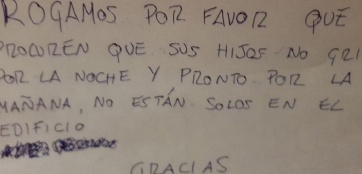 ROGAMOS POR FAVOR QUE
PROCUREN QUE SUS HIJOS NO GRI
POR LA NOCHE Y PRONTO POR LA
MAÑANA, NO ESTÁN SOLOS EN EL
EDIFICIO
GRACIAS